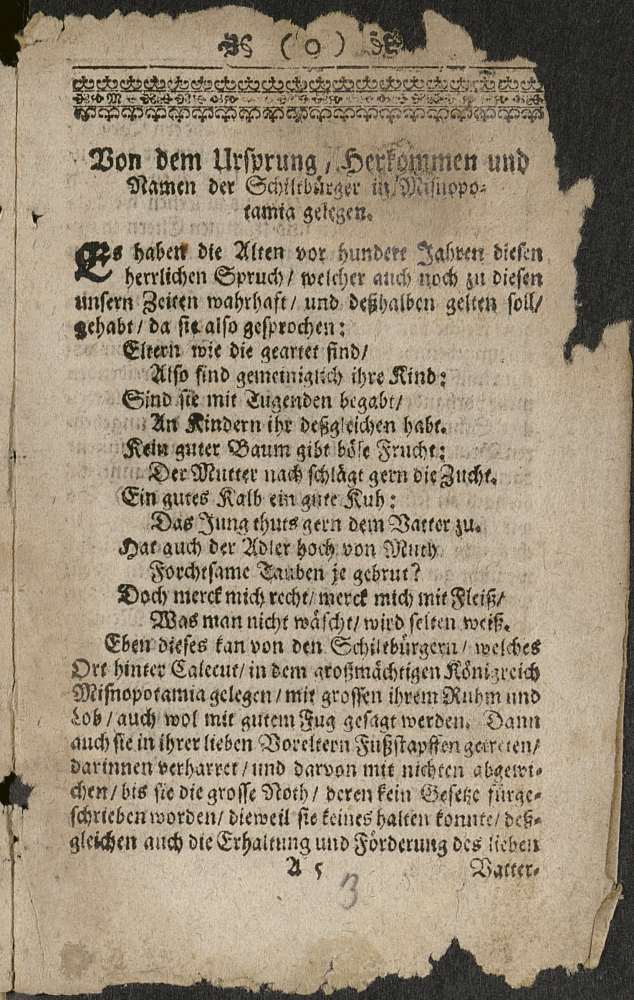 ( 0 )
Von dem Ursprung / Herkommen und
Namen der Schiltbürger in Misnopo-
tamia gelegen.
Es haben die Alten vor hundert Jahren diesen
herrlichen Spruch / welcher auch noch zu diesen
unsern Zeiten wahrhaft / und deßhalben gelten soll /
gehabt / da sie also gesprochen:
Eltern wie die geartet sind /
Also sind gemeiniglich ihre Kind:
Sind sie mit Tugenden begabt /
An Kindern ihr deßgleichen habt.
Kein guter Baum gibt böse Frucht:
Der Mutter nach schlägt gern die Zucht.
Ein gutes Kalb ein gute Kuh:
Das Jung thuts gern dem Vatter zu.
Hat auch der Adler hoch von Muth
Forchtsame Tauben je gebrut?
Doch merck mich recht / merck mich mit Fleiß /
Was man nicht wäscht / wird selten weiß.
Eben dieses kan von den Schiltbürgern / welches
Ort hinter Calecut / in dem großmächtigen Königreich
Misnopotamia gelegen / mit grossen ihrem Ruhm und
Lob / auch wol mit gutem Fug gesagt werden. Dann
auch sie in ihrer lieben Voreltern Fußstapffen getreten /
darinnen verharret / und darvon mit nichten abgewi-
chen / bis sie die grosse Noth / deren kein Gesetze fürge-
schrieben worden / dieweil sie keines halten konnte / deß-
gleichen auch die Erhaltung und Förderung des lieben
A 5
Vatter-
3